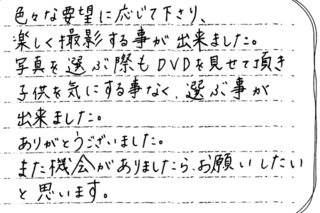 色々な要望に応じて下さり、
楽しく撮影する事が出来ました。
写真を選ぶ際もDVDを見せて頂き
子供を気にする事なく、選ぶ事が
出来ました。
ありがとうございました。
また機会がありましたら、お願いしたい
と思います。